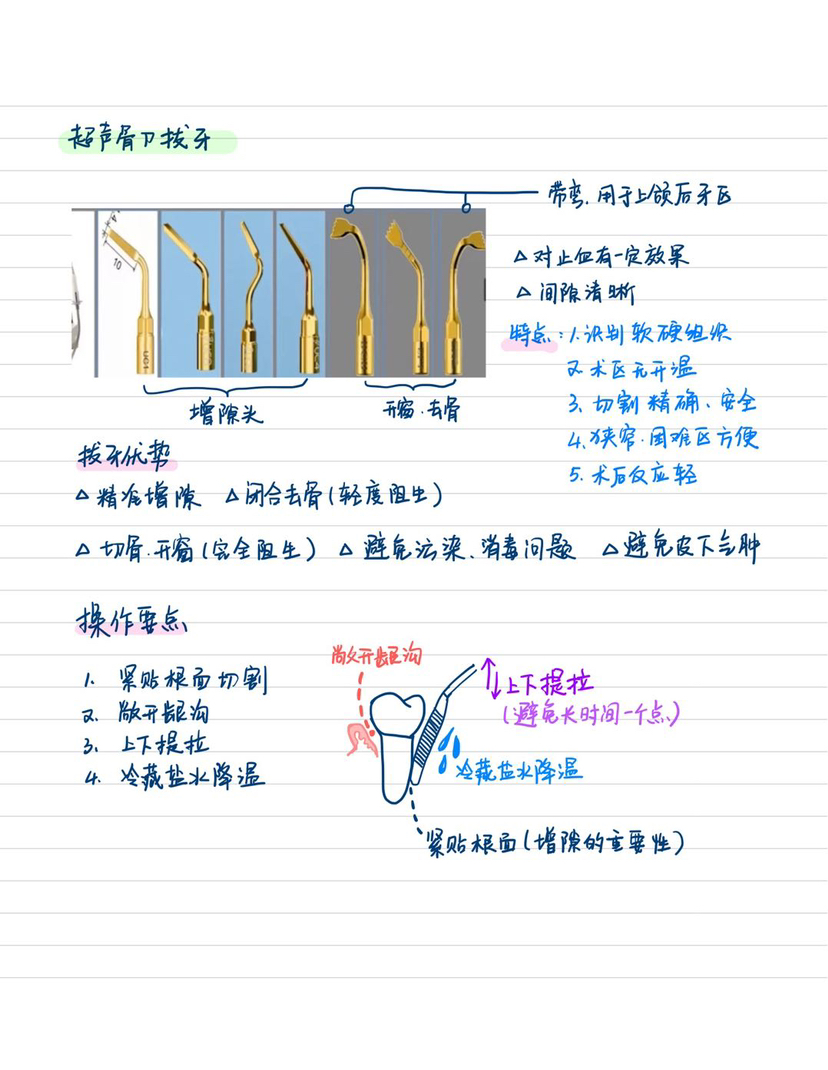 超声骨刀拔牙
带弯.用于上颌后牙区
△ 对止血有一定效果
△ 间隙清晰
特点：1.识别软硬组织
2.术区无升温
3、切割精确、安全
4.狭窄.困难区方便
5.术后反应轻
4
10
UC1
增隙头
开窗.去骨
拔牙优势
△ 精准增隙 △ 闭合去骨(轻度阻生)
△ 切骨.开窗(完全阻生) △ 避免污染、消毒问题 △ 避免皮下气肿
操作要点
1. 紧贴根面切割
2. 敞开龈沟
3. 上下提拉
4. 冷藏盐水降温
敞开龈沟
上下提拉
(避免长时间一个点)
冷藏盐水降温
紧贴根面(增隙的重要性)